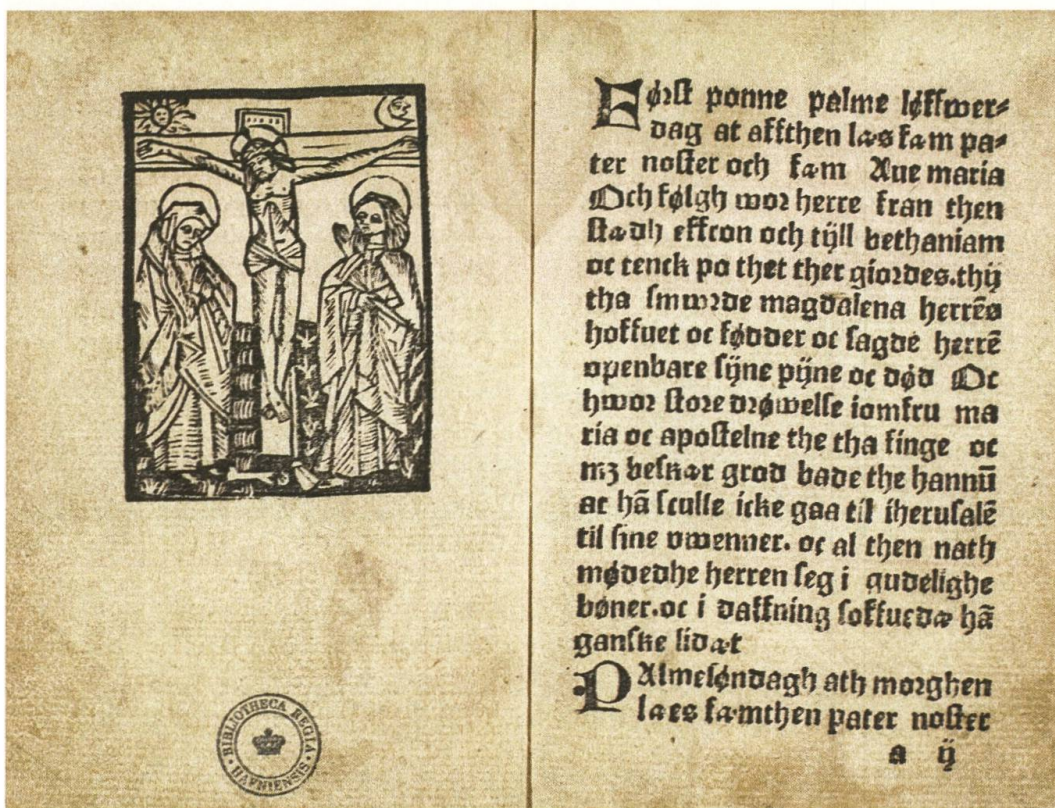 BIBLIOTHECA REGIA HAFNIENSIS
Først ponne palme løffwer⸗
dag at affthen læs fæm pa⸗
ter noster och fæm Aue maria
Och følgh wor herre fran then
stædh effcon och tijll bethaniam
oc tenck po thet ther giordes.thij
tha smwrde magdalena herrēs
hoffuet oc fødder oc sagde herrē
openbare sijne pijne oc død Oc
hwor store drøwelse iomfru ma
ria oc apostelne the tha finge oc
mꝫ beskær grod bade the hannū
at hā sculle icke gaa til iherusalē
til sine vwenner. oc al then nath
mødedhe herren seg i gudelighe
bøner.oc i daffning soffuedæ hā
ganske lidæt
PAlmesøndagh ath morghen
laes fæmthen pater noster
a ij